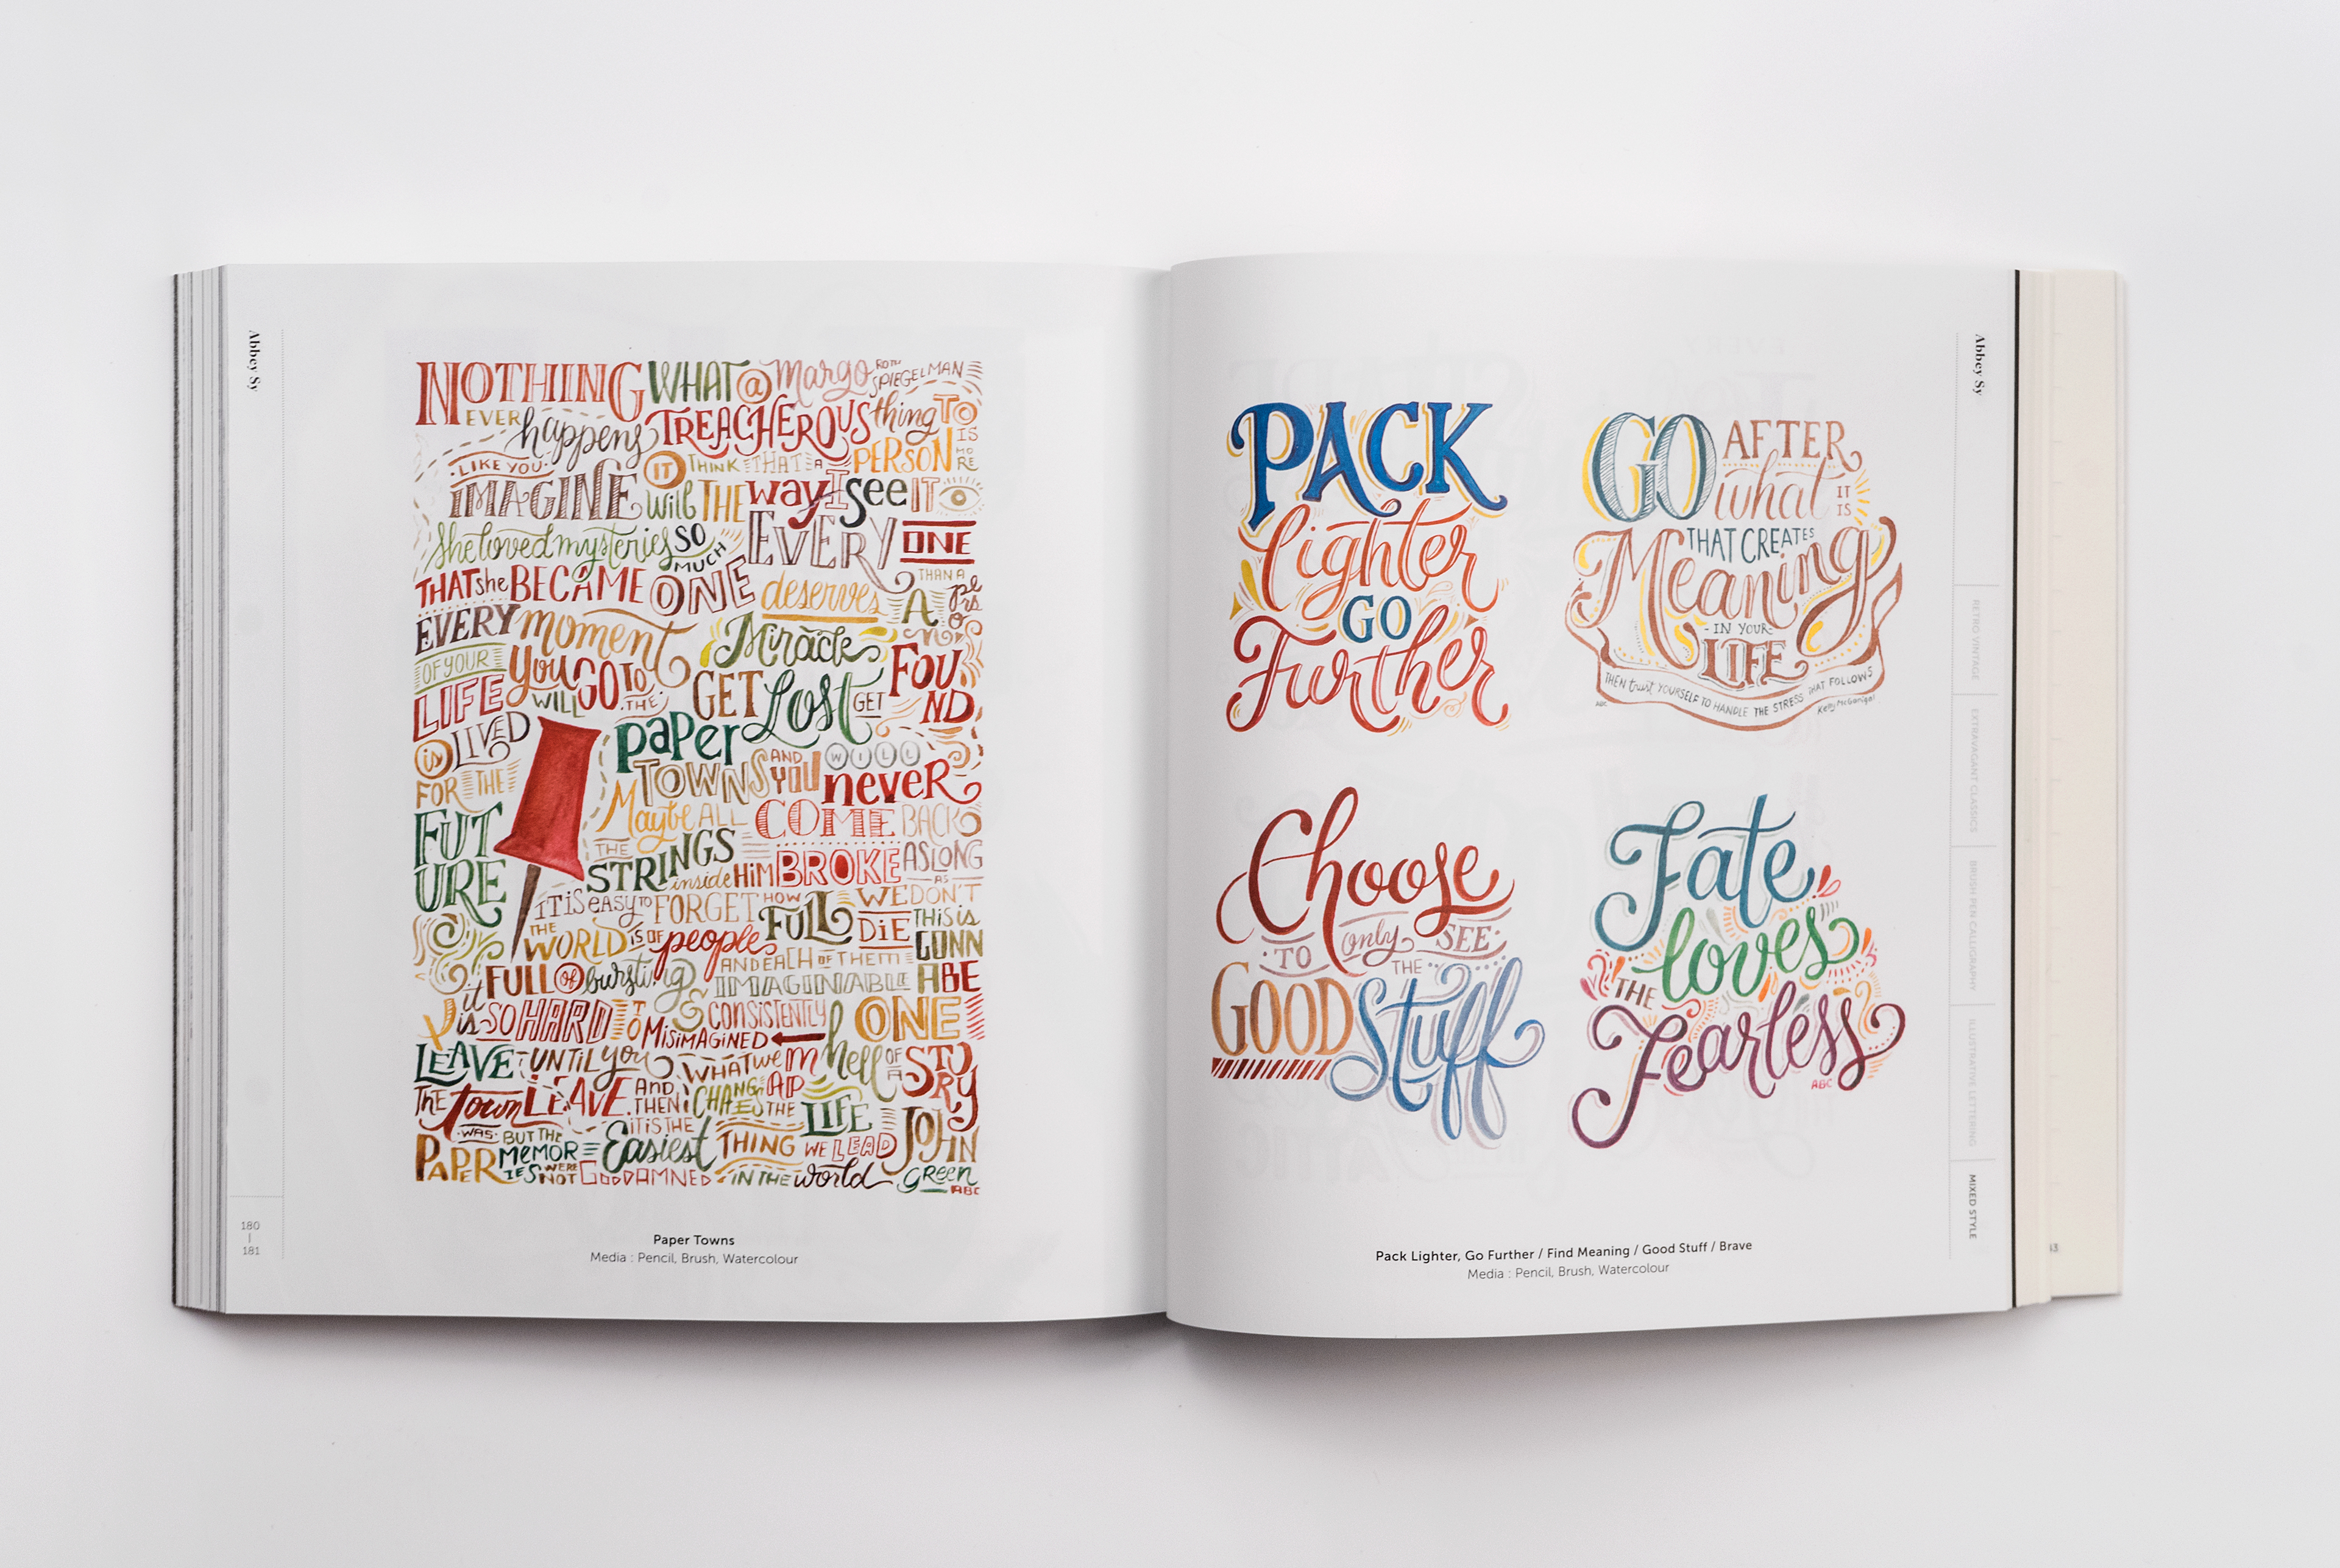 Abbey Sy
NOTHING
EVER happens
LIKE YOU
IMAGINE IT
Will
she loved mysteries SO
MUCH
THAT she BECAME ONE
EVERY moment
OF YOUR
LIFE
is LIVED
FOR THE
FUT
URE
WHAT a Margo ROTH
SPIEGELMAN
TREACHEROUS thing TO
THINK THAT A PERSON IS
MO
RE
THAN A
pe
rs
o
n
THE way I see IT
EVERY ONE
deserves A
Miracle
you WILL GO TO
THE
paper
TOWNS AND
YOU WILL
never
COME BACK
GET Lost GET FOU
ND
Maybe ALL
THE
STRINGS
inside HIM BROKE
AS LONG
AS
WE DON'T
DIE
THIS is
GONN
A BE
ONE
hell OF
A STO
RY
IT IS EASY TO FORGET HOW FULL
THE
WORLD IS OF people
FULL OF bursting
AND EACH OF THEM
IMAGINABLE
& CONSISTENTLY
MISIMAGINED
it
is SO HARD TO
LEAVE UNTIL you
LEAVE AND
THEN
IT IS THE
Easiest THING
GODDAMNED IN THE world
WHAT
CHANGES THE
LIFE
WE LEAD
THE town
WAS
PAPER
BUT THE
MEMOR
IES WERE
NOT
JOHN
GREEN
ABC
Paper Towns
Media : Pencil, Brush, Watercolour
180
181
PACK
lighter
GO
Further
GO AFTER
what IT
IS
THAT CREATES
Meaning
IN YOUR
LIFE
THEN trust YOURSELF TO HANDLE THE STRESS THAT FOLLOWS
Kelly McGonigal
ABC
Choose
TO only SEE
THE
GOOD Stuff
Fate
loves
THE
Fearless
ABC
Pack Lighter, Go Further / Find Meaning / Good Stuff / Brave
Media : Pencil, Brush, Watercolour
Abbey Sy
RETRO VINTAGE
EXTRAVAGANT CLASSICS
BRUSH PEN CALLIGRAPHY
ILLUSTRATIVE LETTERING
MIXED STYLE